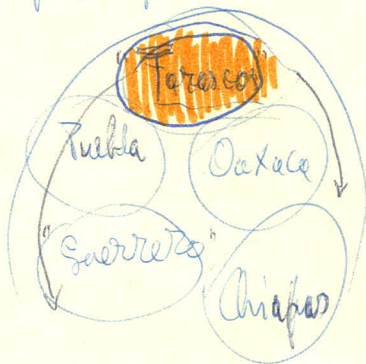 "Tarascos"
Puebla Oaxaca
"Guerrero" Chiapas